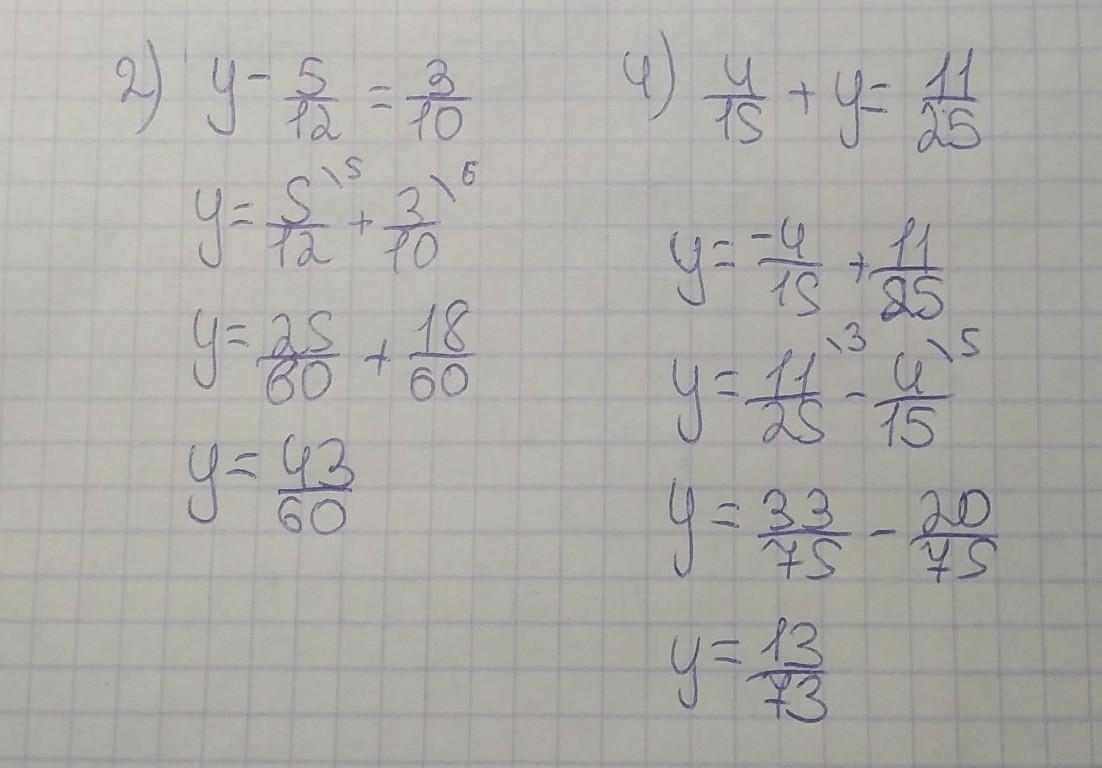 2) y - 5/12 = 3/10
y = 5\5/12 + 3\6/10
y = 25/60 + 18/60
y = 43/60
4) 4/15 + y = 11/25
y = -4/15 + 11/25
y = 11\3/25 - 4\5/15
y = 33/75 - 20/75
y = 13/73